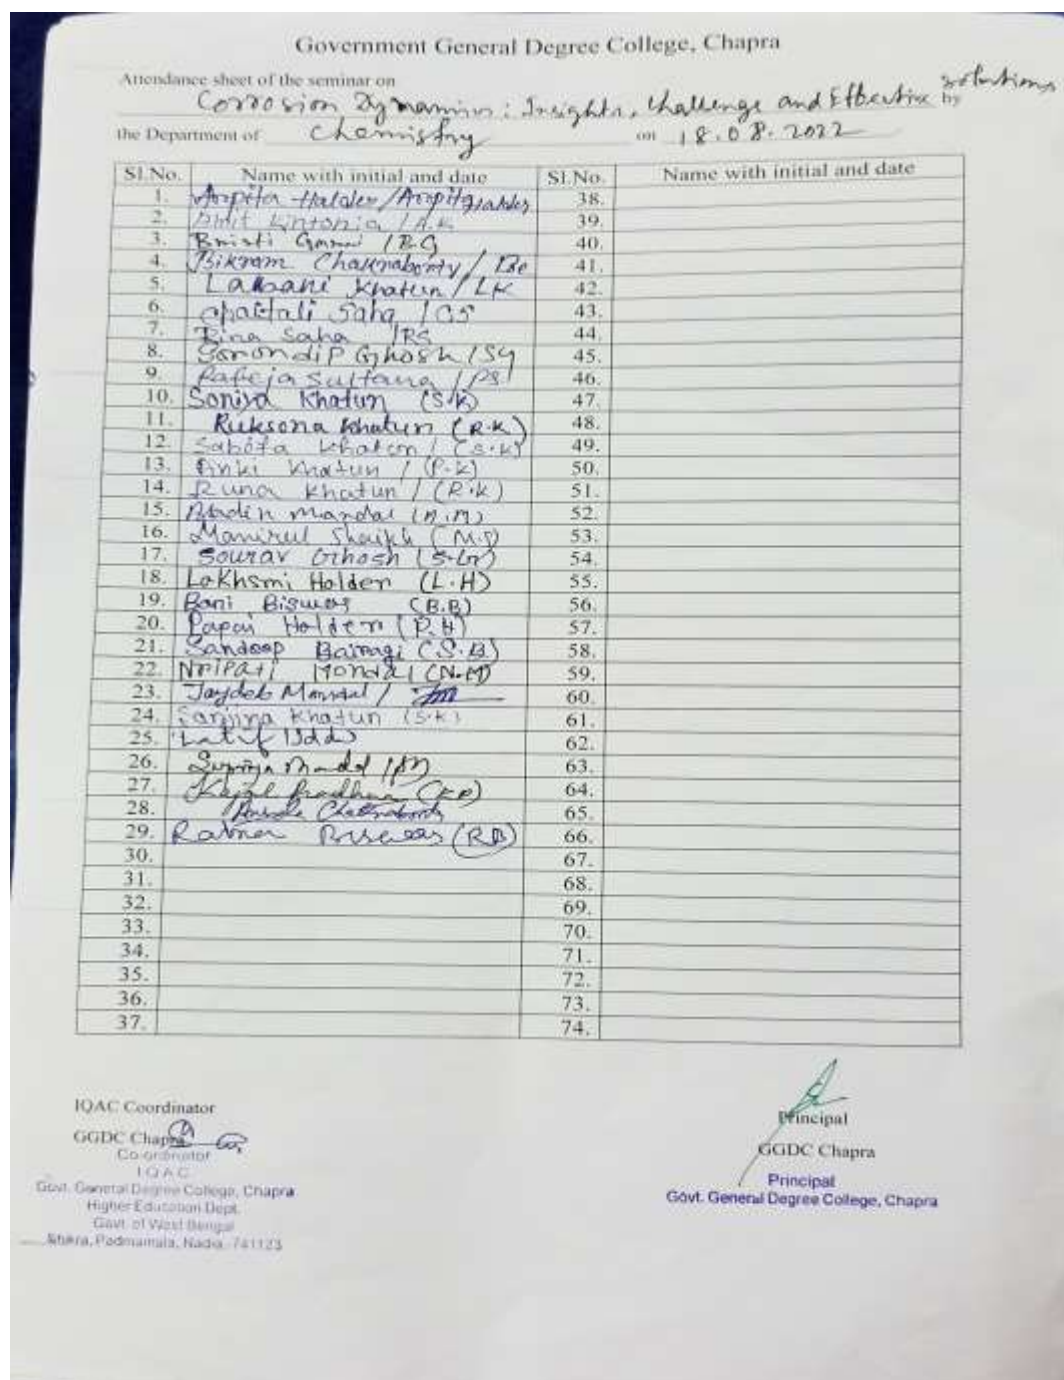 Government General Degree College, Chapra
Attendance sheet of the seminar on
Corrosion Dynamics: Insights, Challenge and Effective solutions by
the Department of Chemistry on 18.08.2022
Sl.No. Name with initial and date Sl.No. Name with initial and date
1. Arpita Halder/Arpita Halder 38.
2. Amit Kintonia /A.K 39.
3. Bristi /B.G 40.
4. Bikram Chakraborty / 41.
5. Labani Khatun/LK 42.
6. Chaitali Saha /CS 43.
7. Rina Saha /RS 44.
8. Sorondip Ghosh /SG 45.
9. Rafeja Sultana /RS 46.
10. Soniya Khatun (S.K) 47.
11. Ruksona Khatun (R.K) 48.
12. Sabita Khatun / (S.K) 49.
13. Pinki Khatun / (P.K) 50.
14. Runa Khatun / (R.K) 51.
15. Mandal 52.
16. Manirul Shaikh (M.S) 53.
17. Sourav Ghosh (S.G) 54.
18. Lakhsmi Holder (L.H) 55.
19. Bani Biswas (B.B) 56.
20. Papai Holder (P.H) 57.
21. Sandeep Bairagi (S.B) 58.
22. Nripati Mondal (N.M) 59.
23. Jaydeb Mandal / 60.
24. Sanjina Khatun (S.K) 61.
25. Latif Uddi 62.
26. Supriya Mandal / 63.
27. Kajal Pradhan (KP) 64.
28. Chakraborty 65.
29. Ratna Biswas (RB) 66.
30. 67.
31. 68.
32. 69.
33. 70.
34. 71.
35. 72.
36. 73.
37. 74.
IQAC Coordinator
GGDC Chapra
Co-ordinator
IQAC
Govt. General Degree College, Chapra
Higher Education Dept.
Govt. of West Bengal
Padmamala, Nadia, 741123
Principal
GGDC Chapra
Principal
Govt. General Degree College, Chapra